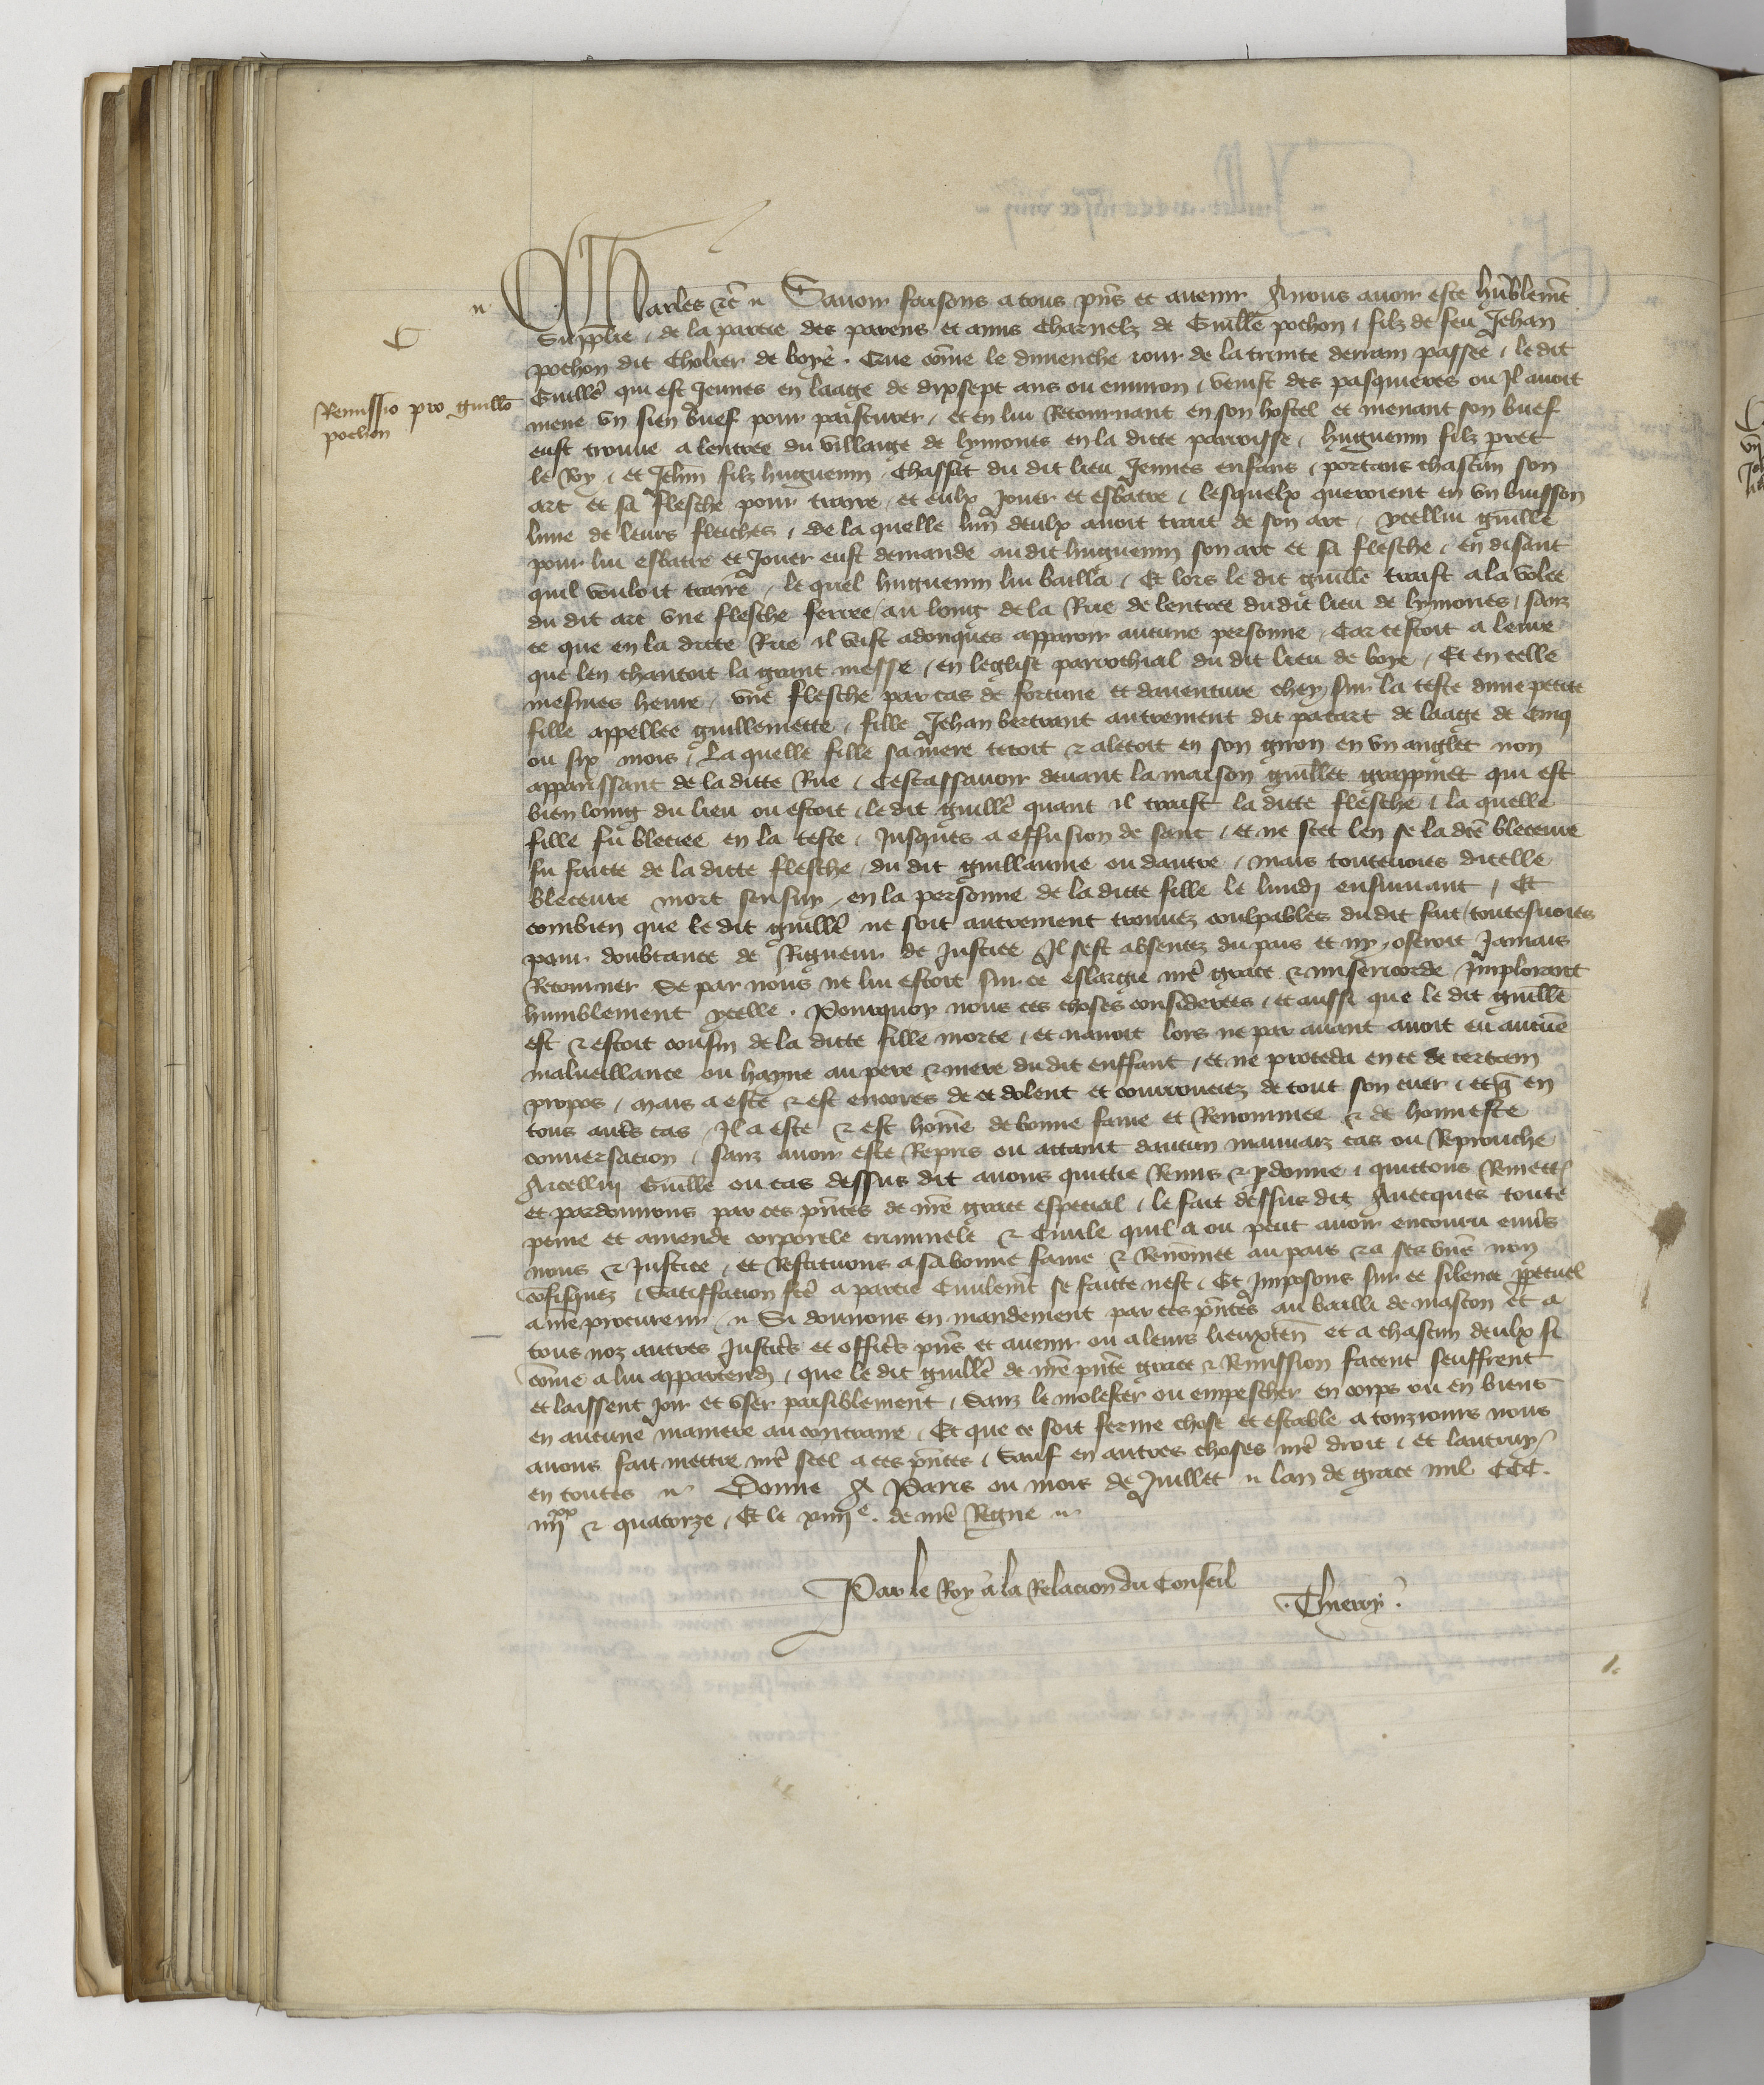 Charles etc. Savoir faisons a tous pñs et avenir A nous avoir este hũblemẽt
Supplie, de la partie des parens et amis charnelz de Guillẽ pochon, filz de feu Jehan
pochon dit Cholier de boye. Que cõme le dimenche iour de la trinite derrain passee, le dit
Guillẽ qui est Jeunes en laage de dixsept ans ou environ, venist des pasquieres ou Il avoit
Remissio pro guillõ
pochon
mene un sien buef pour pasturer, et en lui Retournant en son hostel et menant son buef
eust trouve a lentree du villaige de lymones en la ditte parroisse, huguenin filz perret
le Roy, et Jehñ filz huguenin Chassit du dit lieu Jeunes enfans, portans chascun son
arc et sa flesche pour traire, et eulx Jouer et esbatre, lesquelx queroient en un buisson
lune de leurs fleiches, de la quelle lun deulx avoit trait de son arc, ycellui guillẽ
pour lui esbatre et Jouer eust demande au dit huguenin son arc et sa flesche, en disant
quil vouloit traire, le quel huguenin lui bailla, Et lors le dit guillẽ traist a la volee
du dit arc une flesche ferree, au long de la Rue de lentree du dit lieu de lymones, sanz
ce que en la ditte Rue il veist adonques apparoir aucune personne, Car cestoit a leure
que len chantoit la grant messe, en leglise parrochial du dit lieu de boye, Et en celle
mesmes heure, une flesche par cas de fortune et daventure chey sur la teste dune petite
fille appellee guillemette, fille Jehan bertrant autrement dit patart de laage de Cinq
ou six mois, La quelle fille sa mere tetoit & aletoit en son giron en un anglet non
apparissant de la ditte Rue, Cestassavoir devant la maison guillẽt grappinet qui est
bien loing du lieu ou estoit, le dit guillẽ quant il traist la ditte flesche, la quelle
fille fu bleciee en la teste, Jusques a effusion de sanc, et ne scet len se la dcẽ bleceure
fu faitte de la ditte flesche, du dit guillaume ou dautre, mais toutevoies dicelle
bleceure mort sensuy, en la personne de la ditte fille le lundi ensuivant, Et
combien que le dit guillẽ ne soit autrement trouvez coulpables du dit fait, toutesvoies
pour doubtance de Rigueur de Justice Il sest absentez du pais et ny oseroit Jamais
Retourner Se par nous ne lui estoit sur ce eslargie nrẽ grace & misericorde Implorant
humblement ycelle. Pourquoy nous ces choses considerees, et aussi que le dit guillẽ
est & estoit cousin de la ditte fille morte, et navoit lors ne par avant avoit eu aucune
malveillance ou hayne au pere & mere du dit enffant, et ne proceda en ce de certain
propos, Mais a este & est encores de ce dolent et courrouciez de tout son cuer, et q̃ en
tous autrẽs cas, Il a este & est homẽ de bonne fame et Renommee & de honneste
conversacion, sanz avoir este Repris ou attaint daucun mauvaiz cas ou Reprouche
A icellui Guillẽ ou cas dessus dit avons quittie Remis & pdonne, quittons Remett̃
et pardonnons par ces pñtes de nrẽ grace especial, le fait dessus dit Avecques toute
peine et amende corporele criminele & Civile quil a ou peut avoir encouru envers
nous & Justice, et Restituons a sa bonne fame & Renõmee au pais & a ses biẽs non
cõfisquez, Satiffacion fctẽ a partie Civilemẽt se faitte nest, Et Imposons sur ce silence ppetuel
a nrẽ procureur. Si donnons en mandement par ces pñtes au bailli de mascon et a
tous noz autres Justicrs et officrs pñs et avenir ou a leurs lieuxteñ et a chascun deulx si
cõme a lui appartendr̃, que le dit guillẽ de nrẽ pñte grace & Remission facent seuffrent
et laissent Joir et user paisiblement, Sanz le molester ou empescher en corps ou en biens
en aucune maniere au contraire, Et que ce soit ferme chose et estable a touziours nous
avons fait mettre nrẽ seel a ces pñtes, Sauf en autres choses nrẽ droit, et lautruy
en toutes. Donne A Paris ou mois de Juillet lan de grace mil CCC.
iiijxx & quatorze, Et le xiiije. de nrẽ Regne
Par le Roy a la Relacion du Conseil